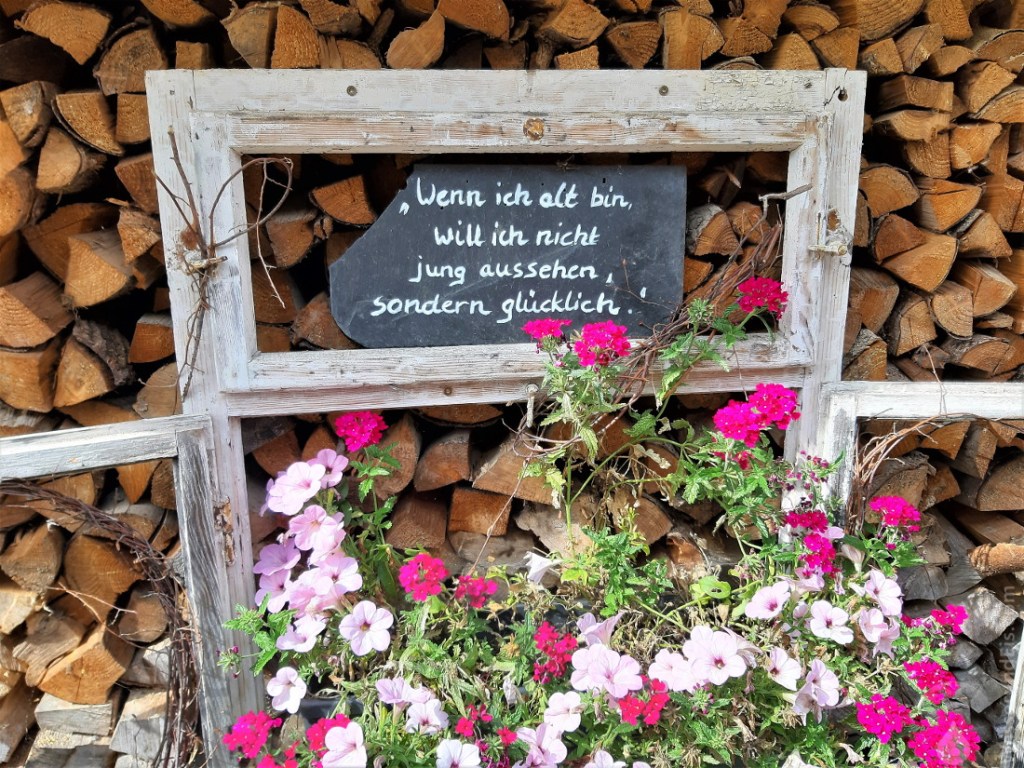 „Wenn ich alt bin,
will ich nicht
jung aussehen,
sondern glücklich.'